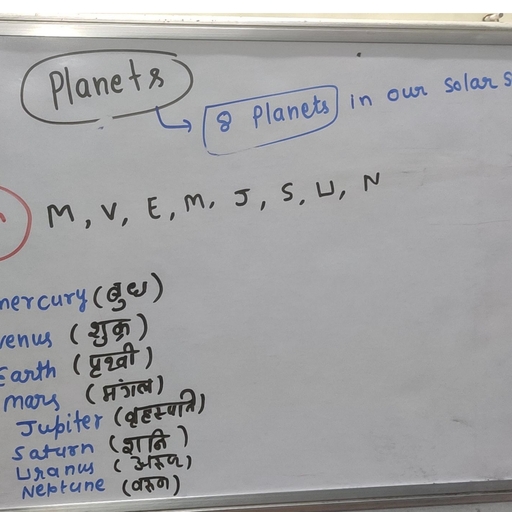 Planets
8 Planets in our solar S
M, V, E, M, J, S, U, N
mercury (बुध)
venus (शुक्र)
Earth (पृथ्वी)
mars (मंगल)
Jupiter (बृहस्पति)
Saturn (शनि)
Uranus (अरुण)
Neptune (वरुन)